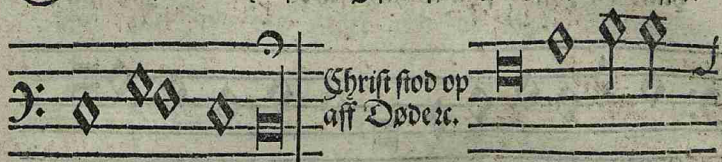 Christ stod op
aff Døde ꝛc.